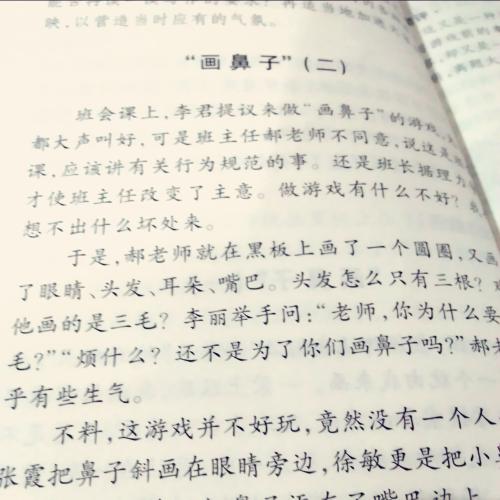 映,以营造当时应有的气氛。
“画鼻子”(二)
班会课上,李君提议来做“画鼻子”的游戏,
都大声叫好,可是班主任郝老师不同意,说这是
课,应该讲有关行为规范的事。还是班长据理力
才使班主任改变了主意。做游戏有什么不好?
想不出什么坏处来。
于是,郝老师就在黑板上画了一个圆圈,又画
了眼睛、头发、耳朵、嘴巴。头发怎么只有三根?
他画的是三毛?李丽举手问:“老师,你为什么要
毛?”“烦什么?还不是为了你们画鼻子吗?”郝老
乎有些生气。
不料,这游戏并不好玩,竟然没有一个人
张霞把鼻子斜画在眼睛旁边,徐敏更是把小鼻